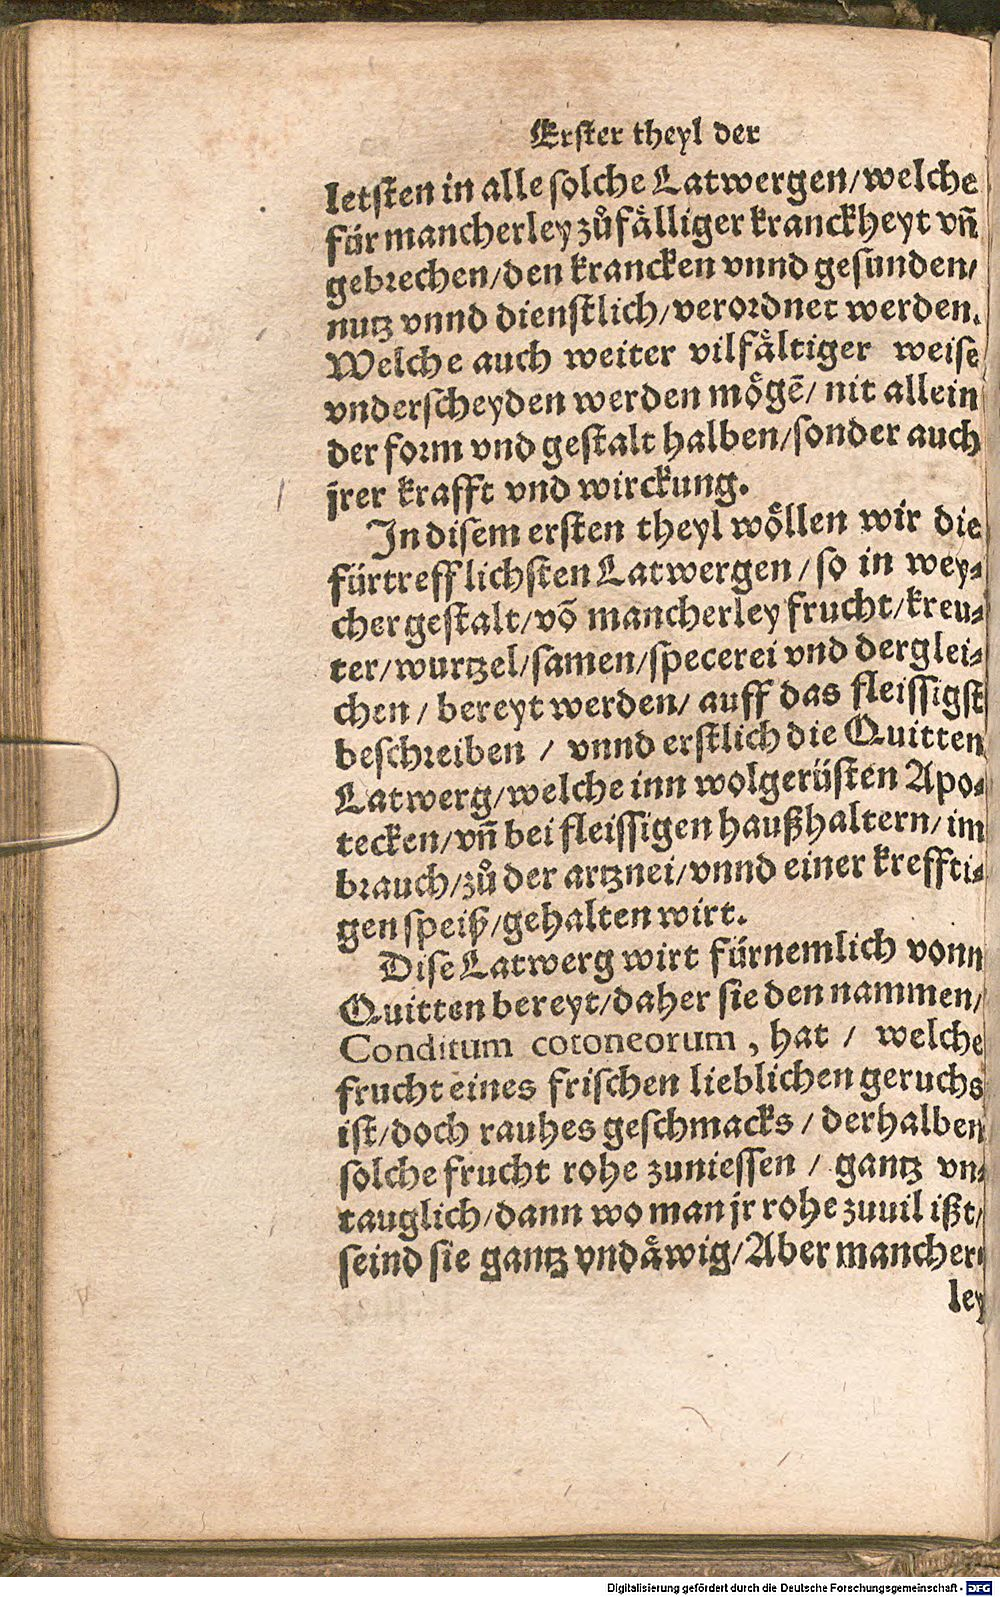 Erster theyl der
letsten in alle solche Latwergen/welche
für mancherley zůfålliger kranckheyt vñ
gebrechen/den krancken vnnd gesunden/
nutz vnnd dienstlich/verordnet werden.
Welche auch weiter vilfåltiger weise
vnderscheyden werden mögẽ/ nit allein
der form vnd gestalt halben/sonder auch
jrer krafft vnd wirckung.
In disem ersten theyl wöllen wir die
fürtrefflichsten Latwergen/so in wey⸗
cher gestalt/võ mancherley frucht/kreu⸗
ter/wurtzel/samen/specerei vnd derglei⸗
chen/ bereyt werden/ auff das fleissigst
beschreiben / vnnd erstlich die Quitten
Latwerg/welche inn wolgerüsten Apo⸗
tecken/vñ bei fleissigen haußhaltern/im
brauch/zů der artznei/vnnd einer kreffti⸗
gen speiß/gehalten wirt.
Dise Latwerg wirt fürnemlich vonn
Quitten bereyt/daher sie den nammen/
Conditum cotoneorum, hat / welche
frucht eines frischen lieblichen geruchs
ist/doch rauhes geschmacks / derhalben
solche frucht rohe zuniessen / gantz vn⸗
tauglich/dann wo man jr rohe zuuil ißt/
seind sie gantz vndåwig/Aber mancher⸗
ley
Digitalisierung gefördert durch die Deutsche Forschungsgemeinschaft - DFG